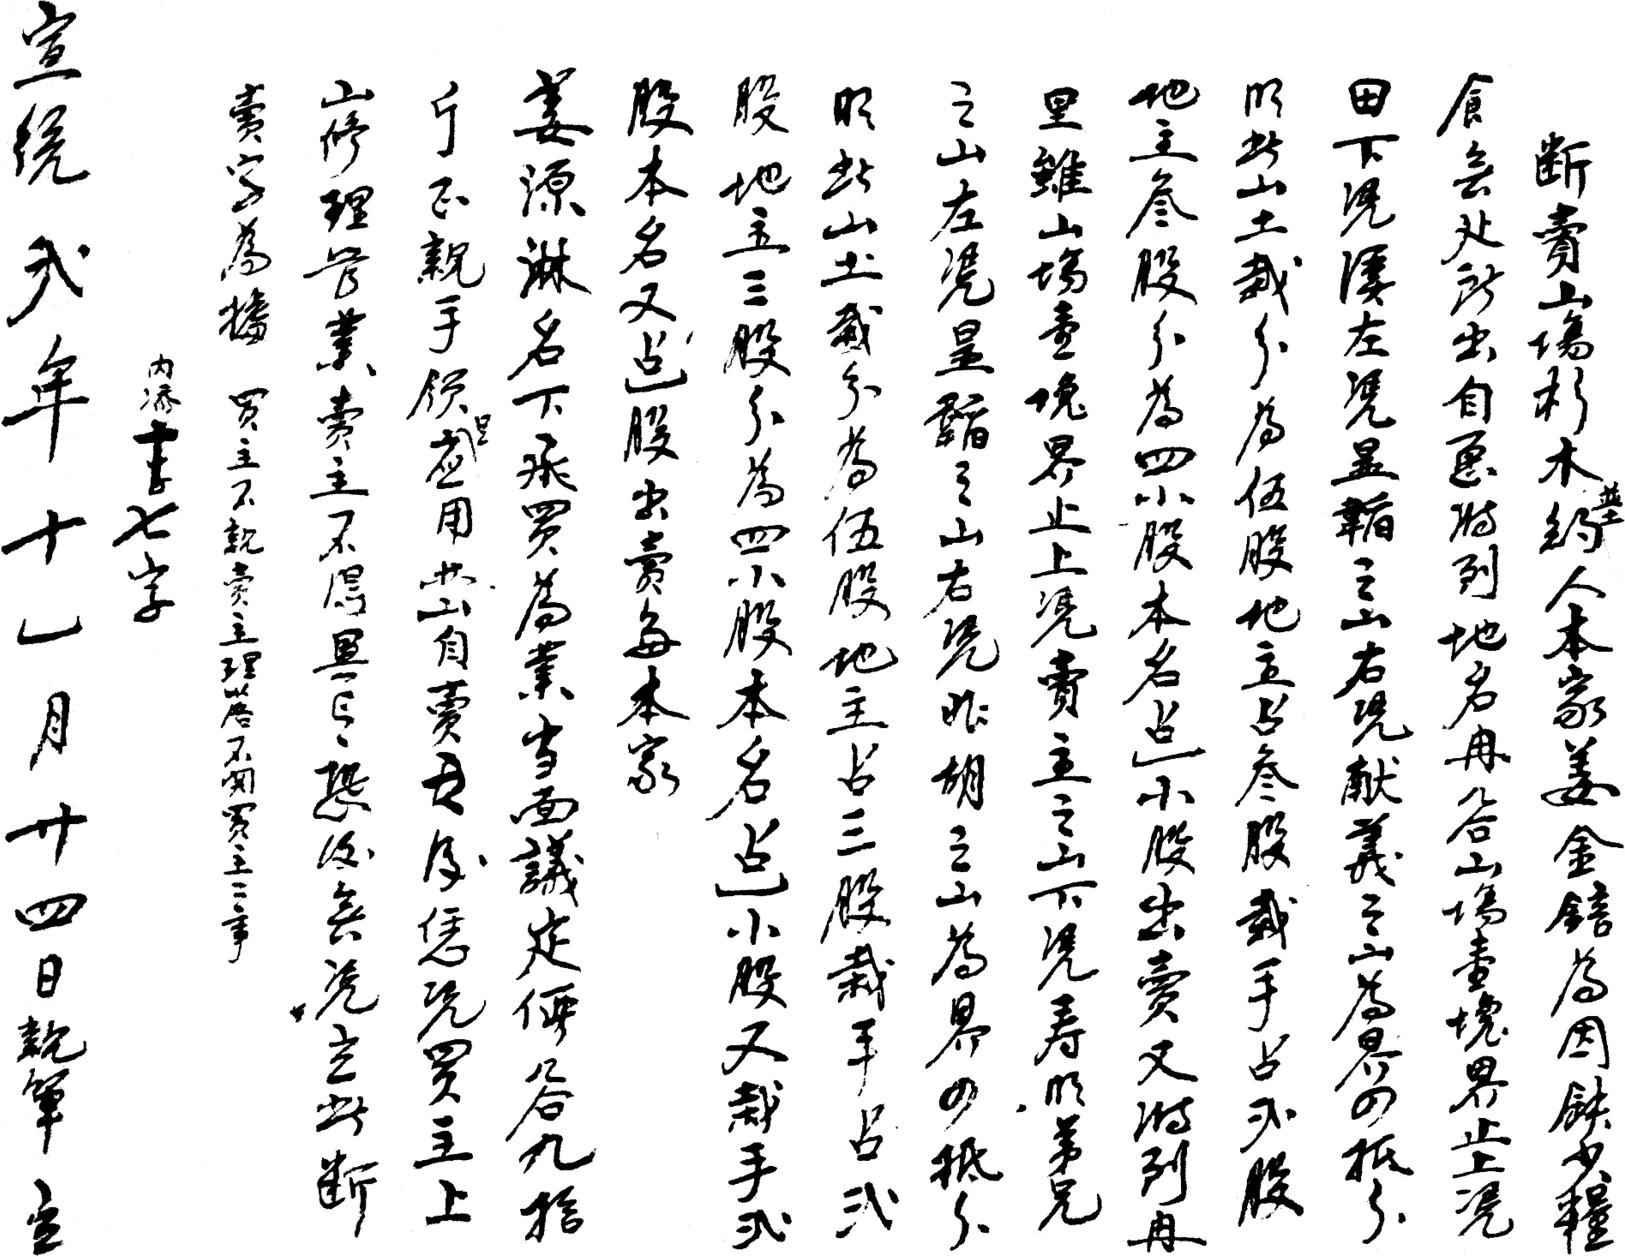 断賣山塲杉木並土約人本家姜金錇為因缺少糧
食無处所出自愿將到地名冉谷山塲壹塊界止上凴
田下凴溪左凴显韜之山右凴献義之山為界四抵分
明此山土栽分為伍股地主占叁股栽手占弍股
地主叁股分為四小股本名占一小股出賣又將到冉
里雖山塲壹塊界止上凴賣主之山下凴寿明弟兄
之山左凴显韜之山右凴胡之山為界四抵分
明此山土栽分為伍股地主占三股栽手占弍
股地主三股分為四小股本名占一小股又栽手弍
股本名又占一股出賣與本家
姜源淋名下承買為業当面議定價谷九拾
斤正親手領足應用其山自賣之後凭凴買主上
山修理管業賣主不得異言恐後無凴立此断
賣字為據 買主不親賣主理落不関買主之事
内添七字
宣統弍年十一月廿四日親筆立